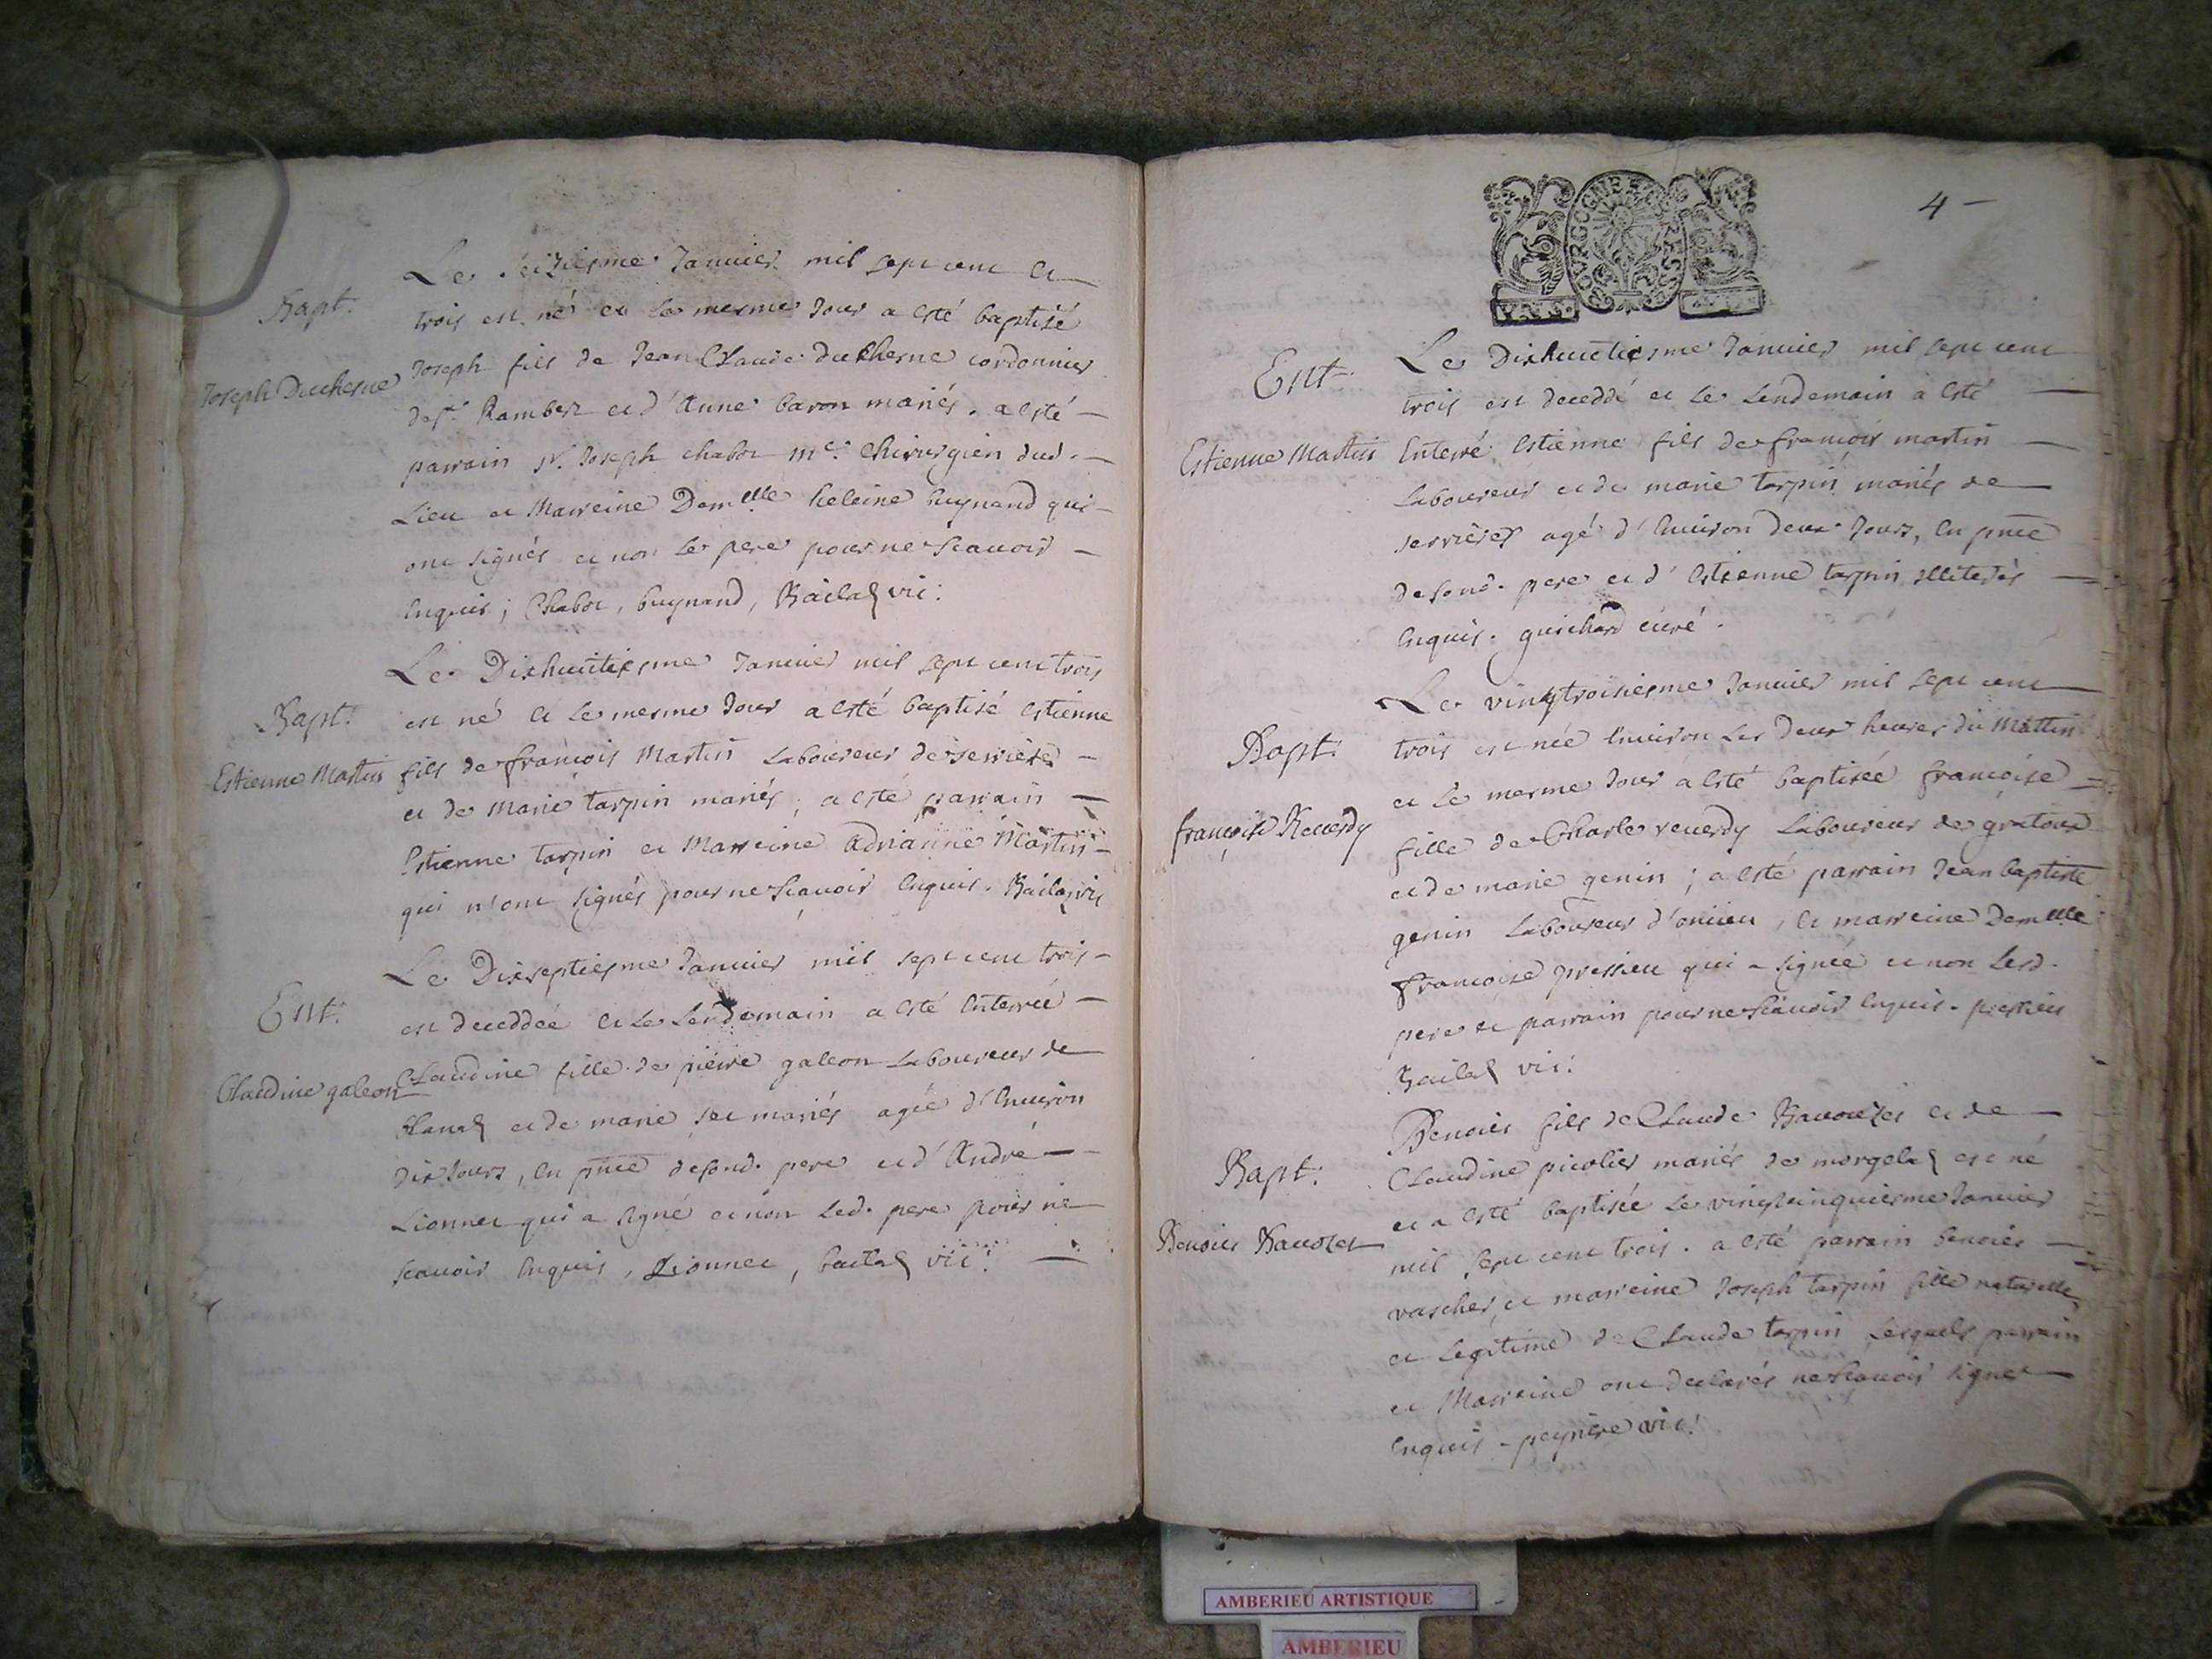 Le seiziesme Januier mil sept cent et
Bapt.
trois est né et le mesme Jour a esté baptisé
Joseph Duchesne
Joseph fils de Jean Claude duchesne cordonnier
de st. Rambert et d'Anne baron mariés. a esté
parrain sr. Joseph chabot me. chirurgien dud.
Lieu et Marreine Demlle heleine buynand qui
ont signés et non le pere pour ne scauoir
enquis; Chabot, buynand, Bailat vic:
Le Dixhuitiesme Januier mil sept cent trois
Bapt.
est né et le mesme Jour a esté baptisé estienne
Estienne Martin
fils de françois Martin Laboureur de serrieres
et de Marie tarpin mariés; a esté parrain
Estienne tarpin et Marreine Adrianne Martin
qui n'ont signés pour ne scauoir enquis. Bailat vic
Le Dixseptiesme Januier mil sept cent trois
Ent.
est deceddée et le Lendemain a esté Enterrée
Claudine galeon
Claudine fille de pierre galeon Laboureur de
et de marie mariés agée d'Enuiron
dix Jours, en pnce desond. pere et d'André
Lionnet qui a signé et non led. pere pour ne
scauoir enquis, Lionnet, bailat vic:
4
BOURGOGNE
Le Dixhuitiesme Januier mil sept cent
Ent.
trois est deceddé et le Lendemain a esté
Estienne Martin
Enterré Estienne fils de françois martin
Laboureur et de marie tarpin mariés de
serrieres agé d'Enuiron deux Jours, en pnce
desond. pere et d'Estienne tarpin illiterés
enquis. guichard curé.
Le vingtroisiesme Januier mil sept cent
Bapt.
trois est née Enuiron les deux heures du Mattin
et le mesme Jour a esté baptisée françoise
françoise Reuerdy
fille de Charle reuerdy Laboureur de gratoux
et de marie genin; a esté parrain Jean baptiste
genin Laboureur d'oncieu, et marreine Demlle
françoise pressieu qui a signée et non lesd.
pere et parrain pour ne scauoir enquis. pressieu
Bailat vic:
Benoict fils de Claude Bauozet et de
Bapt.
Claudine picolier mariés de morgelas est né
et a esté baptisée le vingtcinquiesme Januier
Benoict Bauozet
mil sept cent trois. a esté parrain benoict
vascher, et marreine Joseph tarpin fille naturelle
et Legitime de Claude tarpin Lesquels parrain
et Marreine ont declarés ne scauoir signer
enquis. peysiere vic:
AMBERIEU ARTISTIQUE
AMBERIEU